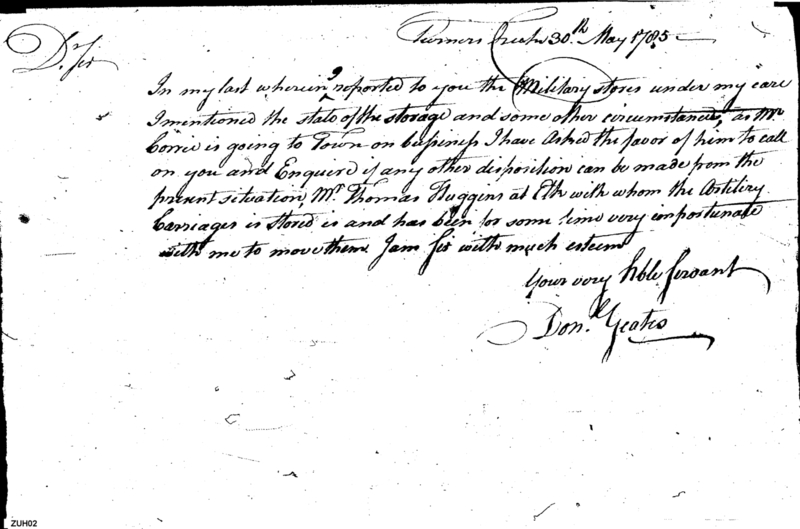 Turners Creek 30.th May 1785
D.r Sir
In my last wherein I reported to you the Military stores under my care
I mentioned the state of the storage and some other circumstances, as Mr
Corrie is going to Town on bussiness I have Asked the favor of him to call
on you and Enquere if any other disposition can be made from the
present situation, Mr. Thomas Huggins at Elk with whom the Artilery
Carriages is stored is and has been for some time very importunate
with me to move them. I am Sir with much esteem
Your very hble Servant
Don.d Yeates
ZUH02